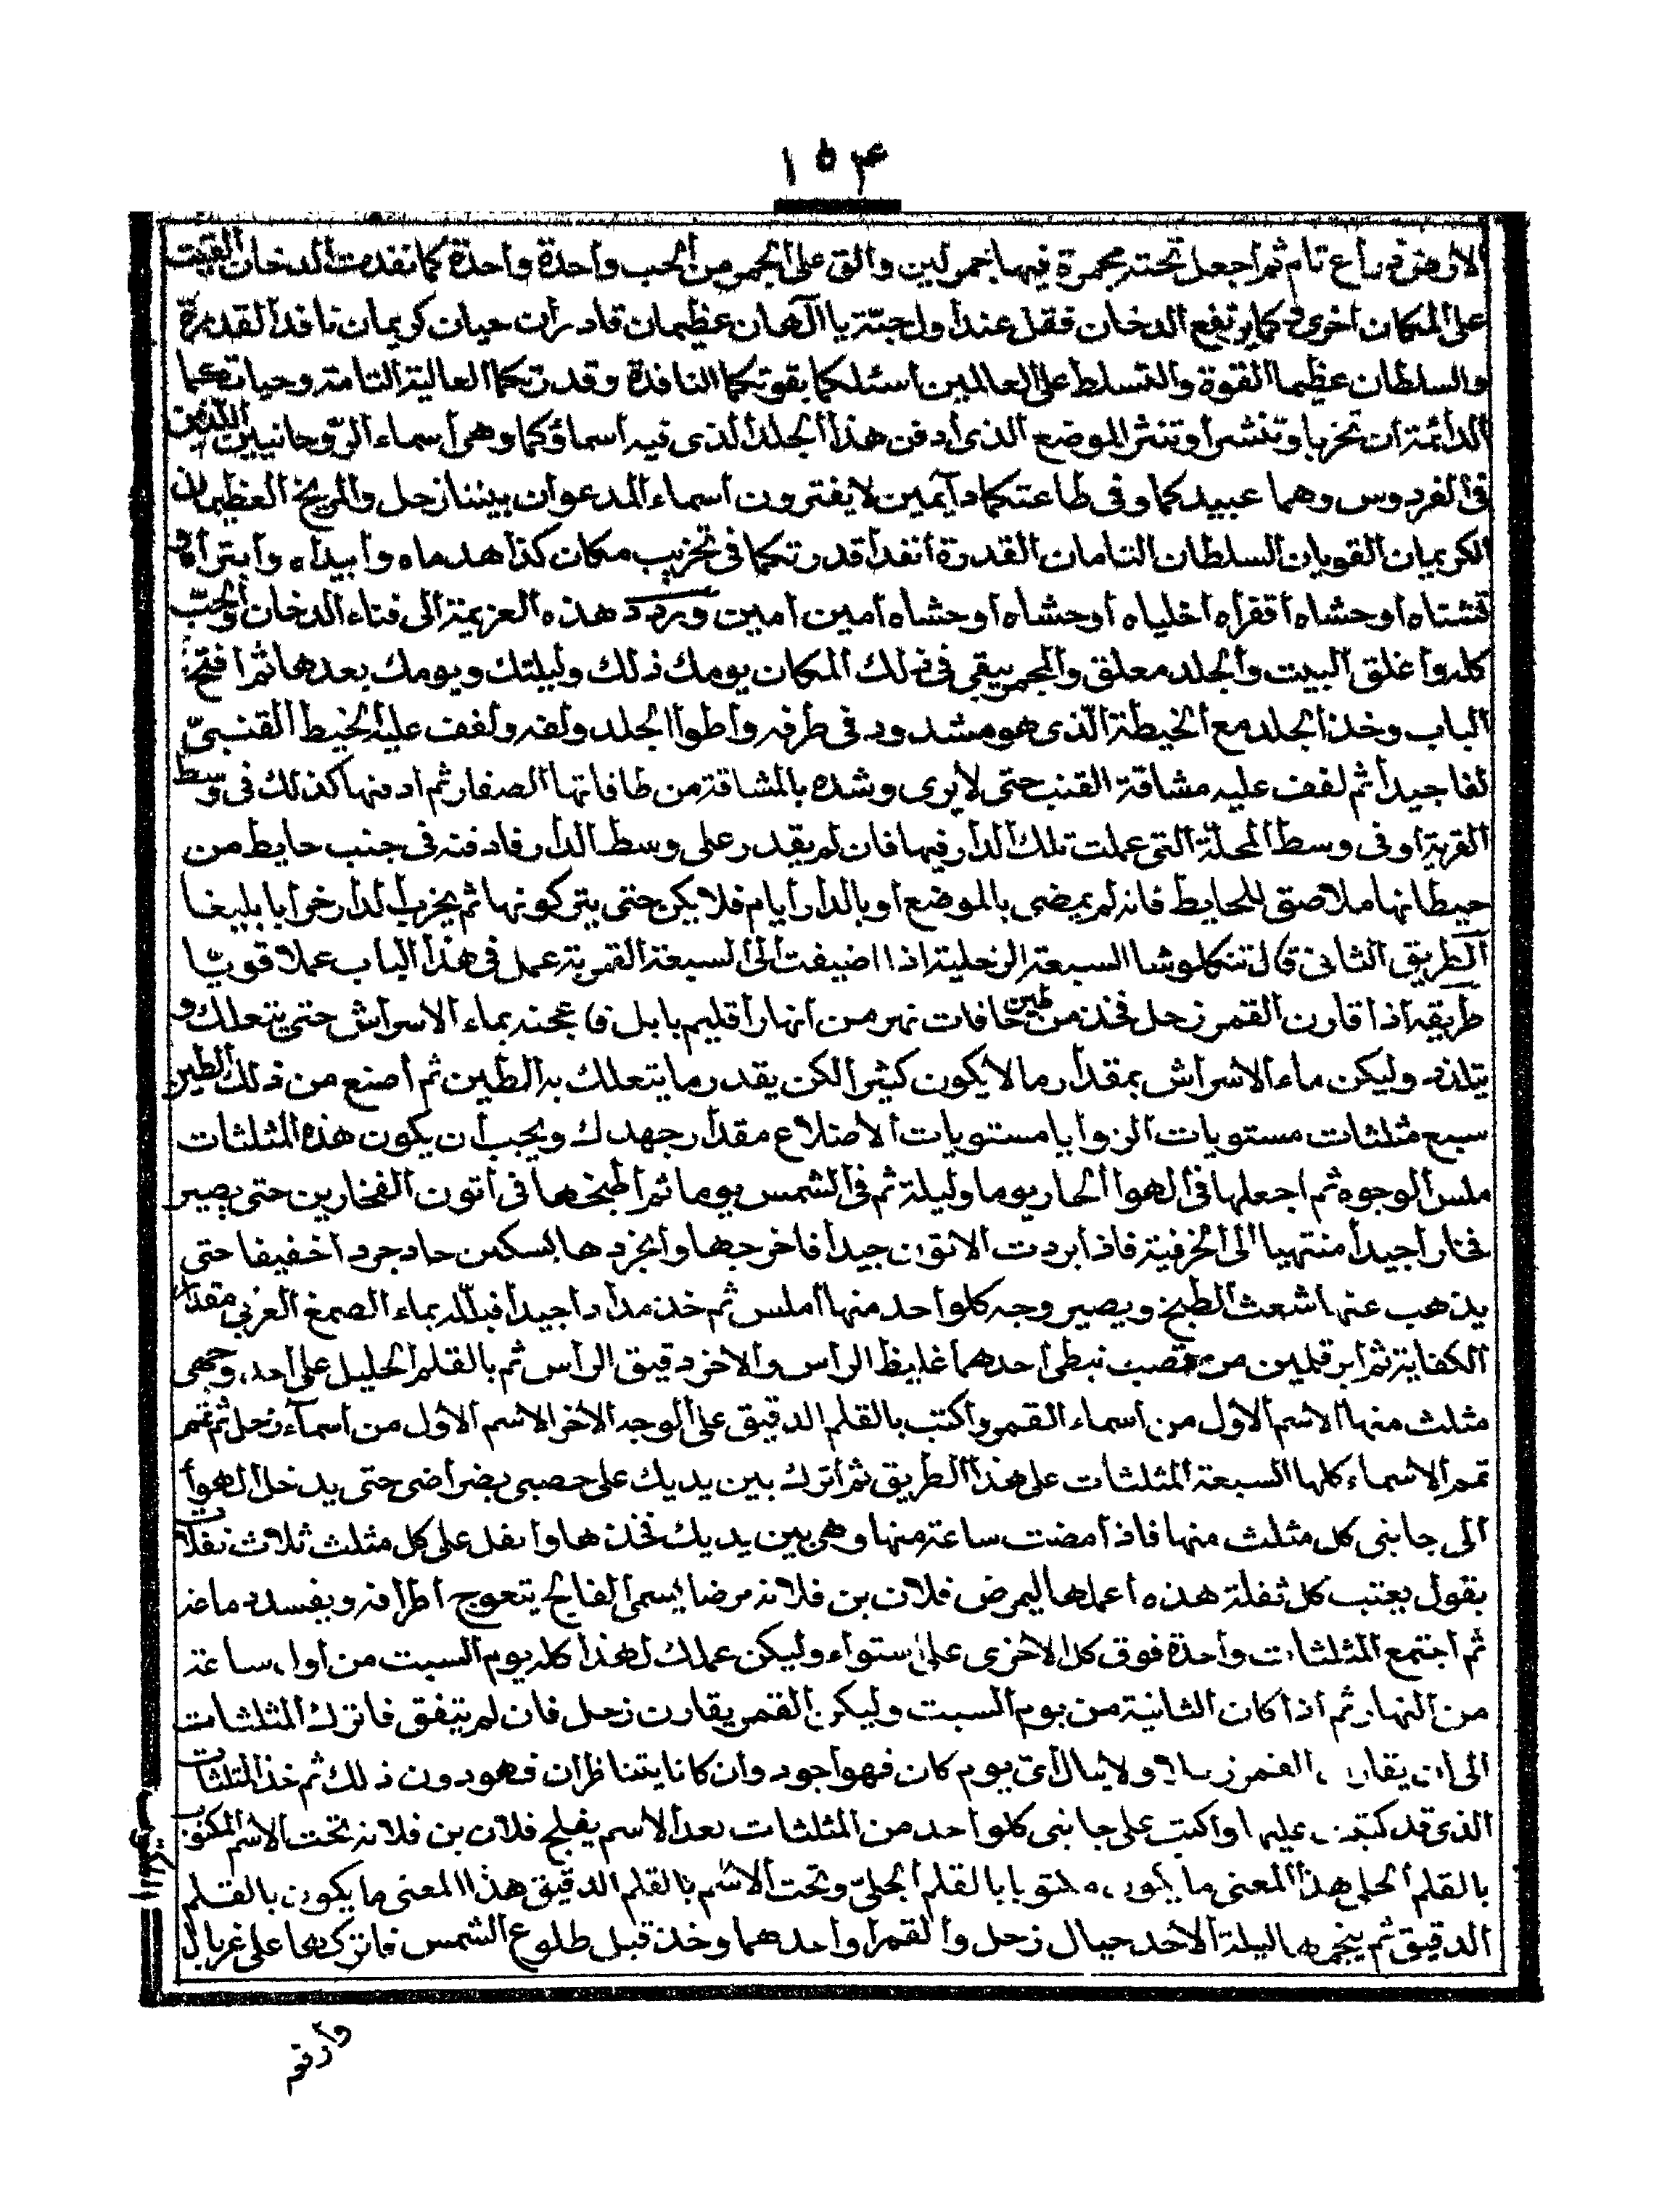 ١٥٤
الارض ذراع تام ثم اجعل تحته مجمرة فيها جمر لين والق على الجمر من الحب واحدة واحدة كما نفدت الدخان القيت
على المكان اخرى فكما يرتفع الدخان فقل عند اول حبّة يا الٓهان عظيمان قادران حيان كريمان نافذا القدرة
والسلطان عظيما القوة والتسلط على العالمين اسئلكما بقوتكما النافذة وقدرتكما العالية التامة وحياتكما
الدائمة ان تخربا وتنشرا وتنثر الموضع الذى ادفن هذا الجلد الذى فيه اسماؤكما وهى اسماء الرّوحانيين اللذين
فى الفردوس وهما عبيدكما وفى طاعتكما دآيمين لا يفترون اسماء المدعوان بيننا زحل والمريخ العظيمان
الكريمان القويان السلطان التامان القدرة انفدا قدرتكما فى تخريب مكان كذا اهدماه وابيداه وابتراه و
تشتاه اوحشاه اقفراه اخلياه اوحشاه اوحشاه امين امين وردد هذه العزيمة الى فناء الدخان والحبّ
كله واغلق البيت والجلد معلق والمجمر يبقى فى ذلك المكان يومك ذلك وليلتك ويومك بعدها ثم افتح
الباب وخذ الجلد مع الخيطة الّذى هو مشدود فى طرفه واطوا الجلد ولفه ولفف عليه الخيط القنبىّ
لفا جيدا ثم لفف عليه مشاقة القنب حتى لا يرى وشده بالمشاقة من طاقاتها الصفار ثم ادفنها كذلك فى وسط
القرية او فى وسط المحلة التى عملت تلك الدار فيها فان لم يقدر على وسط الدار فادفنه فى جنب حايط من
حيطانها ملاصق للحايط فانه لم يمضى بالموضع او بالدار ايام فلا يكن حتى يتركونها ثم يخرب الدار خرابا بليغا
الطريق الثانى قال تنكلوشا السبعة الزحلية اذا اضيفت الى السبعة القمرية عمل فى هذا الباب عملا قويّا
طريقه اذا قارن القمر زحل فخذ من طين حافات نهر من انهار اقليم بابل فاعجنه بماء الاسراش حتى يتعلك و
يتلذد وليكن ماء الاسراش بمقدار ما لا يكون كثيرا لكن يقدر ما يتعلك به الطين ثم اصنع من ذلك الطين
سبع مثلثات مستويات الزوايا مستويات الاضلاع مقدار جهدك ويجب ان يكون هذه المثلثات
ملس الوجوه ثم اجعلها فى الهوا الحار يوما وليلة ثم فى الشمس يوما ثم اطبخها فى اتون الفخارين حتى يصير
فخارا جيدا منتهيا الى الخزفية فاذا بردت الاتون جيدا فاخرجها وانجردها بسكين حاد جردا خفيفا حتى
يذهب عنها شعث الطبخ ويصير وجه كلواحد منها املس ثم خذ مدادا جيدا فبلّله بماء الصمغ العربى مقدار
الكفاية ثم ابر قلمين من قصب نبطى احدهما غليظ الراس والاخر دقيق الراس ثم بالقلم الجليل على احد وجهى
مثلث منها الاسم الاول من اسماء القمر واكتب بالقلم الدقيق على الوجه الاخر الاسم الاول من اسمآء زحل ثم تمم
تمم الاسماء كلها السبعة المثلثات على هذا الطريق ثم اترك بين يديك على حصبى بضراضى حتى يدخل الهوا
الى جانبى كل مثلث منها فاذا مضت ساعة منها وهى بين يديك فخذها واتفل على كل مثلث ثلاث تفلات
بقول بعتب كل تفلة هذه اعملها ليمرض فلان بن فلانه مرضا يسمى الفالج يتعوج اطرافه ويفسد دماغه
ثم اجتمع المثلثات واحدة فوق كل الاخرى على استواء وليكن عملك لهذا كله يوم السبت من اول ساعة
من النهار ثم اذا كان الثانية من يوم السبت وليكن القمر يقارن زحل فان لم يتفق فاترك المثلثات
الى ان يقارن القمر زحل ولا يبال اىّ يوم كان فهو اجود وان كانا يتناظران فهو دون ذلك ثم خذ المثلثات
الذى قد كتبت عليها واكتب على جانبى كلواحد من المثلثات بعد الاسم يفلج فلان بن فلانه تحت الاسم المكتوب
بالقلم الجلى هذا المعنى ما يكون مكتوبا بالقلم الجلىّ وتحت الاسم بالقلم الدقيق هذا المعنى ما يكون بالقلم
الدقيق ثم ينجمها ليلة الاحد حيال زحل والقمر او احدهما وخذ قبل طلوع الشمس فاتركها على غربال
وارقم